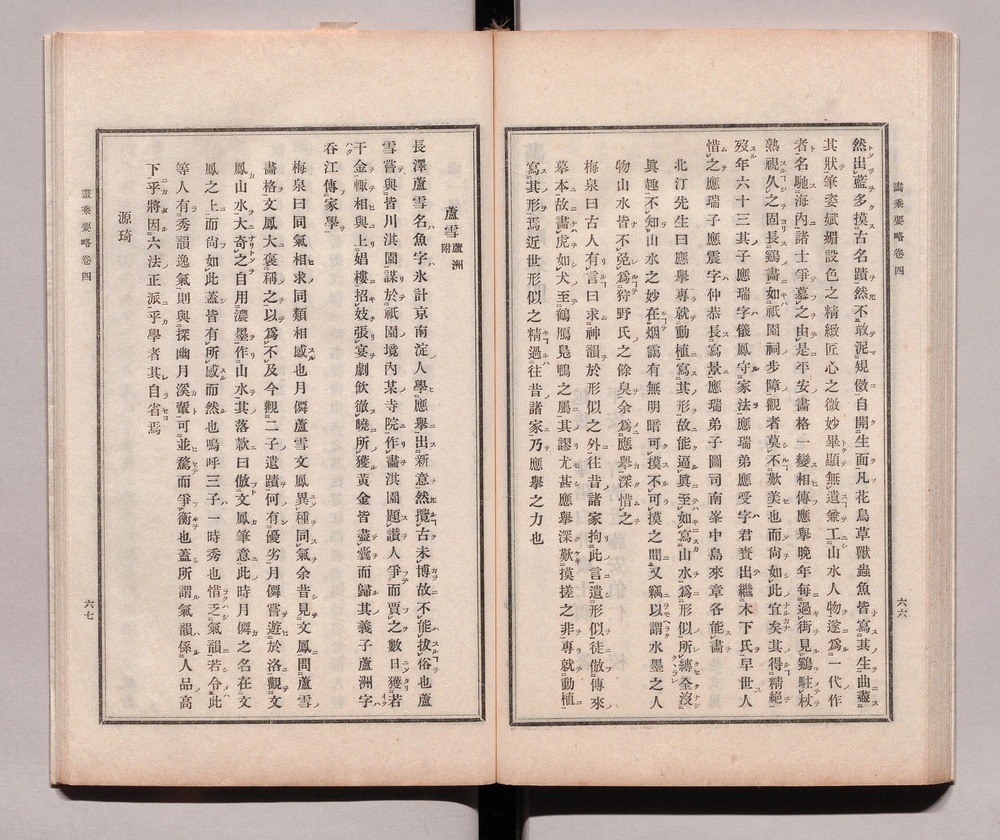 畫乘要略卷四
六六
然出藍多摸古名蹟然不敢泥規倣自開生面凡花鳥草獸蟲魚皆寫其生曲盡
其狀筆姿娬媚設色之精緻匠心之微妙畢顯無遺兼工山水人物遂爲一代作
者名馳海內諸士爭慕之由是平安畫格一變相傳應擧晚年每過街見鷄駐杖
熟視久之固長鷄畫如祇園祠步障觀者莫不歎美也而尙如此宜矣其得精絕
歿年六十三其子應瑞字儀鳳守家法應瑞弟應受字君賚出繼木下氏早世人
惜之應瑞子應震字仲恭長寫景應瑞弟子圖司南峯中島來章各能畫
北汀先生曰應擧專就動植寫其形故能逼眞至如寫山水爲形似所縛全沒
眞趣不知山水之妙在烟靄有無明暗可摸不可摸之間又竊以謂水墨之人
物山水皆不免爲狩野氏之餘臭余爲應擧深惜之
梅泉曰古人有言曰求神韻於形似之外往昔諸家拘此言遺形似徒倣傳來
摹本故畫虎如犬至鶴鴈鳧鴨之屬其謬尤甚應擧深歎摸搓之非專就動植
寫其形焉近世形似之精過往昔諸家乃應擧之力也
蘆雪 蘆洲附
長澤蘆雪名魚字氷計京南淀人學應擧出新意然攬古未博故不能拔俗也蘆
雪嘗與皆川淇園謀於祇園境內某寺院作畫淇園題讚人爭而賈之數日獲若
干金輒相與上娼樓招妓張宴劇飮徹曉所獲黃金皆盡囊而歸其義子蘆洲字
呑江傳家學
梅泉曰同氣相求同類相感也月僲蘆雪文鳳異種同氣余昔見文鳳問蘆雪
畫格文鳳大褒稱之以爲不及今觀二子遺蹟何有優劣月僲嘗遊於洛觀文
鳳山水大奇之自用濃墨作山水其落款曰倣文鳳筆意此時月僲之名在文
鳳之上而尙如此蓋皆有所感而然也嗚呼三子一時秀也惜乏氣韻若令此
等人有秀韻逸氣則與探幽月溪輩可並鶩而爭衡也蓋所謂氣韻係人品高
下乎將因六法正派乎學者其自省焉
源琦
畫乘要略卷四
六七